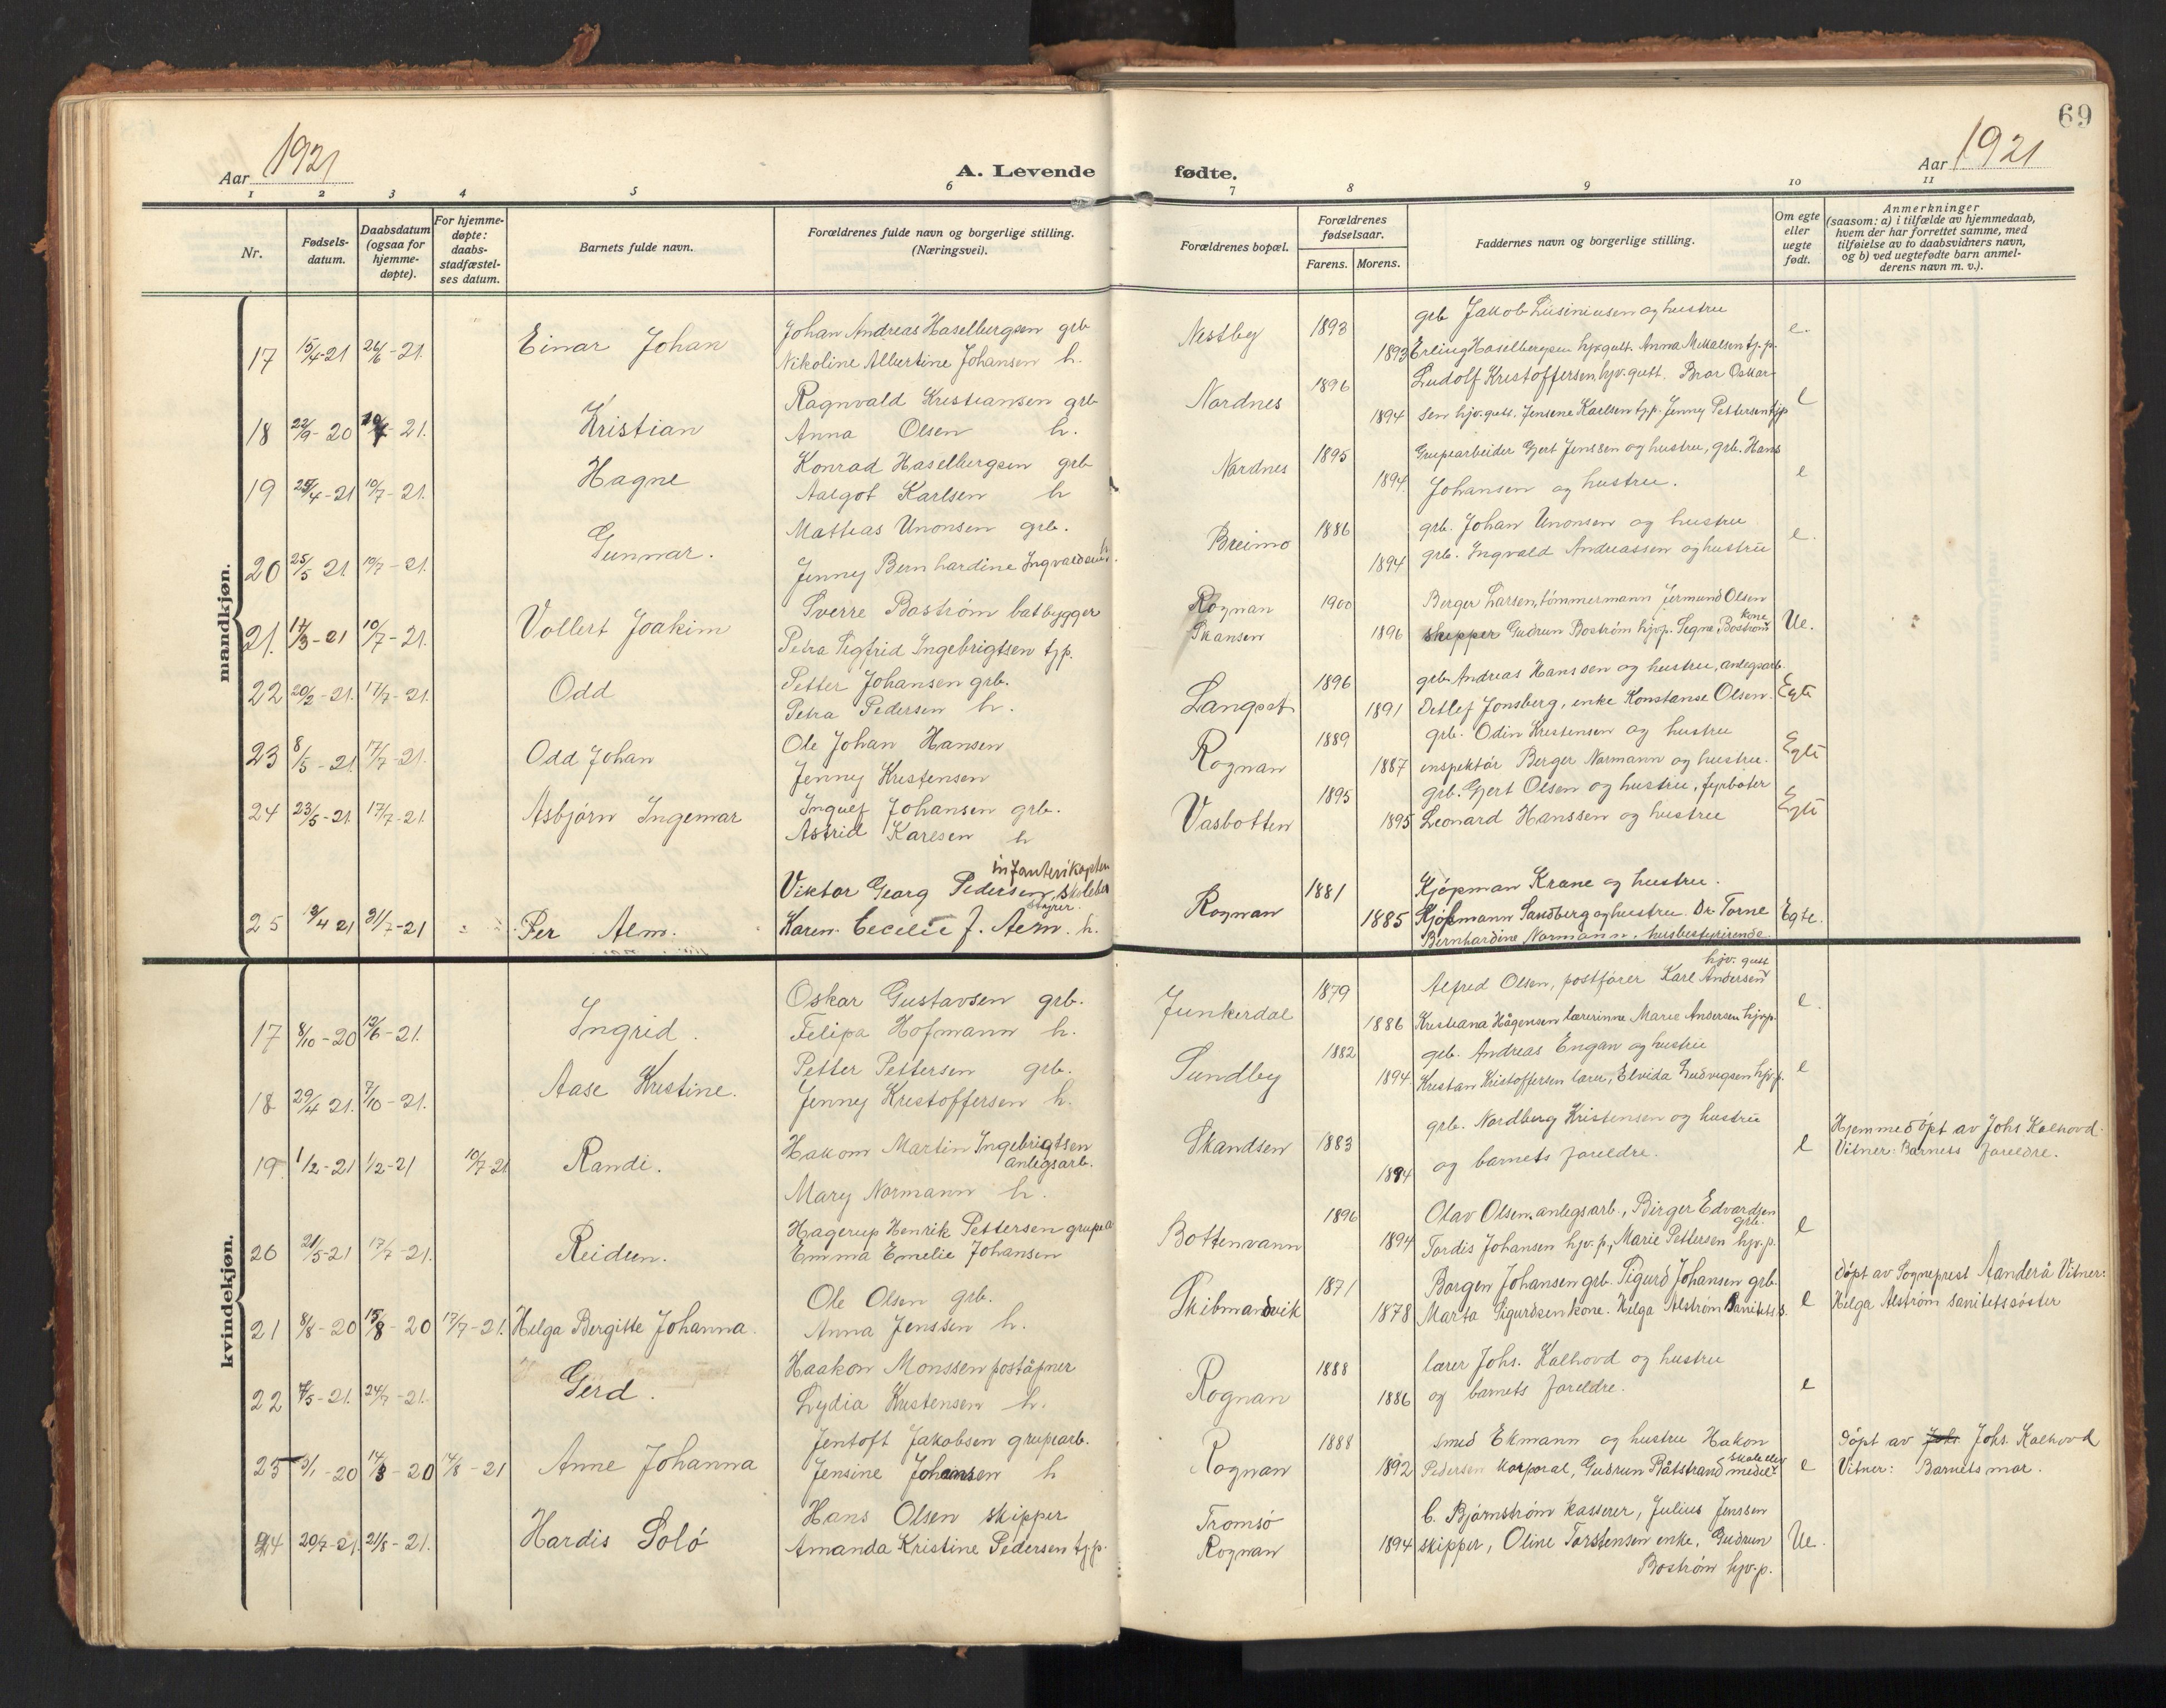 69
Aar 1921
A. Levende fødte.
Aar 1921
1 2 3 4 5 6 7 8 9 10 11
Nr.
Fødsels-datum.
Daabsdatum (ogsaa for hjemme-døpte).
For hjemme-døpte: daabs-stadfæstel-ses datum.
Barnets fulde navn.
Forældrenes fulde navn og borgerlige stilling. (Næringsvei).
Forældrenes bopæl.
Forældrenes fødselsaar.
Farens. Morens.
Faddernes navn og borgerlige stilling.
Om egte eller uegte født.
Anmerkninger
(saasom: a) i tilfælde av hjemmedaab,
hvem der har forrettet samme, med
tilføielse av to daabsvidners navn,
og b) ved uegtefødte barn anmel-
derens navn m. v.).
mandkjøn.
Johan Andreas Haselbergsen grb Nestby 1893 grb Jakob Lusiniusen og hustru e.
17 15/4-21 26/6-21. Einar Johan Nikoline Albertine Johansen h. 1893 Erling Haselbergsen hjv.gutt. Anna Mikalsen tj.p.
Ragnvald Kristiansen grb Nordnes 1896 Ludolf Kristoffersen hjv.gutt. Bror Oskar- e
18 22/9-20 -21. Kristian Anna Olsen h. 1894 sen hjv.gutt. Jensine Karlsen tj.p. Jenny Pettersen tjp
Konrad Haselbergsen grb Nordnes 1895 Grupearbeider Gjert Jenssen og hustru, grb. Hans e
19 25/4-21 10/7-21. Hagne Aargot Karlsen h 1894 Johansen og hustru.
Mattias Unonsen grb. Breimo 1886 grb. Johan Unonsen og hustru e.
20 25/5 21 10/7-21. Gunnar. Jenny Bernhardine Ingvaldsen h. 1894 grb. Ingvald Andreassen og hustru
Sverre Bostrøm batbygger Rognan 1900 Berger Larsen, tømmermann Jermund Olsen
21. 17/3-21 10/7-21. Vollert Joakim Petra Sigfrid Ingebrigtsen tjp. Skansen 1896 skipper Gudrun Bostrøm hjv.p. Signe Bostrøm kone Ue.
Petter Johansen grb. 1896 grb. Andreas Hanssen og hustru, anlegsarb.
22 20/2-21. 17/7-21. Odd Petra Pedersen h. Langset 1891 Detlef Jonsberg, enke Konstanse Olsen. Egte
Ole Johan Hansen 1889 grb. Odin Kristensen og hustru
23 8/5-21. 17/7-21. Odd Johan Jenny Kristensen Rognan 1887 inspektör Berger Normann og hustru. Egte
Inguef Johansen grb. 1895 grb. Gjert Olsen og hustru, fyrbøter
24 23/5-21. 17/7-21. Asbjørn Ingemar Astrid Karlsen h Vasbotten 1895 Leonard Hanssen og hustru Egte
infanterikaptein
Viktor Georg Pedersen, skolebe 1881 Kjöpman Krane og hustru.
styrer.
25 4 21 31/7-21 Per Alm. Karen Cecilie J. Alm. h. Rognan 1885 Kjöpmann Sandberg og hustru. Dr. Torne Egte.
Bernhardine Normann, husbestyrerinde.
kvindekjøn.
Oskar Gustavsen grb. Junkerdal 1879 Alfred Olsen, postfører Karl Andersen hjv. gutt
17 8/10-20 12/6-21. Ingrid. Felipa Hofmann h. 1886 Kristiana Hågensen lærerinne Marie Andersen hjvp. e.
Petter Pettersen grb. Sundby 1882 grb. Andreas Engan og hustru
18 29/4 21. 7/10-21. Aase Kristine. Jenny Kristoffersen h. 1894 Kristan Kristoffersen lærer, Elvida Ludvigsen hjv.p. e
Hakom Martin Ingebrigtsen anlegsarb. Skandsen 1883 grb. Nordberg Kristensen og hustru Hjemmedöpt av Johs Kalhovd.
19 1/2-21 1/2-21 10/7-21 Randi. Mary Normann h. 1894 og barnets foreldre. e Vitner: Barnets foreldre.
Hagerup Henrik Pettersen grupea 1896 Olav Olsen, anlegsarb., Birger Edvardsen grb.
20 21/5-21 17/7-21. Reidun. Emma Emelie Johansen Bottenvann 1894 Tordis Johansen hjv.p., Marie Pettersen hjv.p. e
Ole Olsen grb. 1871 Borgen Johansen grb. Sigurd Johansen grb. döpt av Sogneprest Aanderå Vitner:
21 8/8-20 15/8-20 17/7-21. Helga Bergitte Johanna. Anna Jenssen h. Skibmandvik 1878 Marta Sigurdsen kone. Helga Alström Sanitets s. e Helga Alström sanitetssöster
Haakon Monssen poståpner 1888 lærer Johs. Kalhovd og hustru
22 /5-21. 24/7-21. Gerd. Lydia Kristensen h. Rognan 1886 og barnets foreldre. e
Jentoft Jakobsen grupearb. 1888 smed Ekmann og hustru Hakon döpt av Johs. Johs. Kalhovd
23 3/1-20 14/3-20 14/8-21 Anne Johanna Jensine Johansen h Rognan 1892 Pedersen korporal, Gudrun Båtstrand e Vitner: Barnets mor.
Hans Olsen skipper Tromsö C. Bjørnstrøm kasserer, Julius Jenssen
24 20/7-21. 21/8-21. Hardis Soló Amanda Kristine Pedersen tj.p. Rognan 1894 skipper, Oline Torstensen enke, Gudrun Ue.
Bostrøm hjv.p.